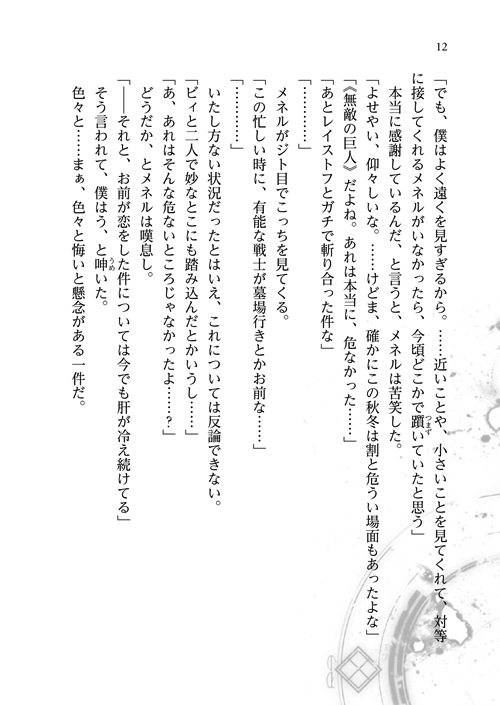 12
「でも、僕はよく遠くを見すぎるから。……近いことや、小さいことを見てくれて、対等
に接してくれるメネルがいなかったら、今頃どこかで躓いていたと思う」
つまず
本当に感謝しているんだ、と言うと、メネルは苦笑した。
「よせやい、仰々しいな。……けどま、確かにこの秋冬は割と危うい場面もあったよな」
「《無敵の巨人》だよね。あれは本当に、危なかった……」
「あとレイストフとガチで斬り合った件な」
「…………」
メネルがジト目でこっちを見てくる。
「この忙しい時に、有能な戦士が墓場行きとかお前な……」
「…………」
いたし方ない状況だったとはいえ、これについては反論できない。
「ビィと二人で妙なとこにも踏み込んだとかいうし……」
「あ、あれはそんな危ないところじゃなかったよ……?」
どうだか、とメネルは嘆息し。
「――それと、お前が恋をした件については今でも肝が冷え続けてる」
そう言われて、僕はう、と呻いた。
うめ
色々と……まぁ、色々と悔いと懸念がある一件だ。